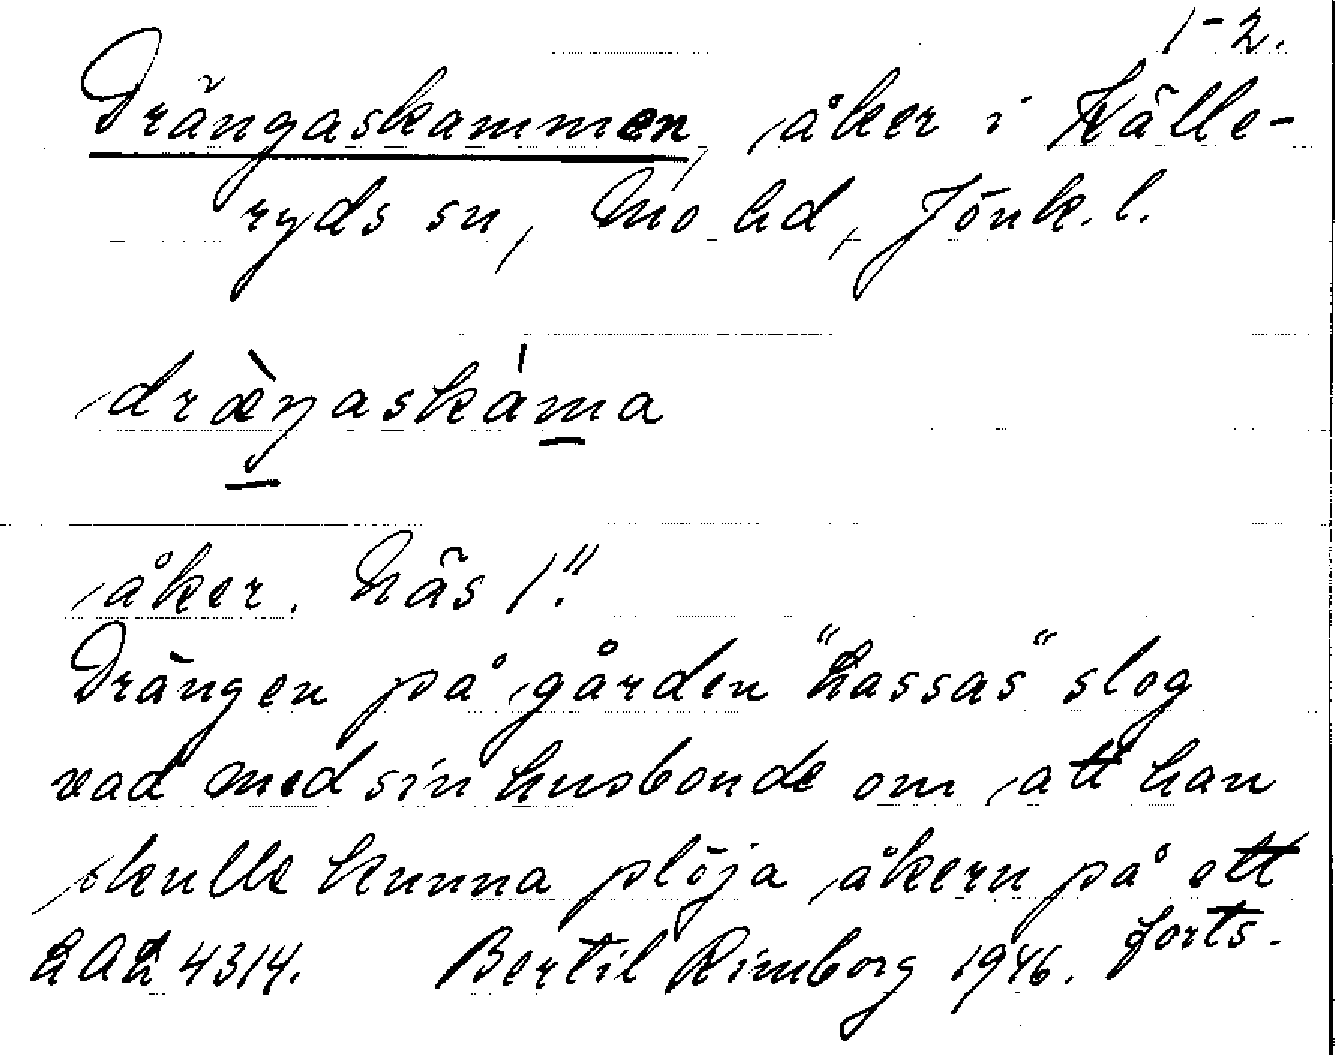 1-2.
Drängaskammen, åker i Källe-
ryds sn, Mo hd, Jönk. l.
dræ̀ŋaskáma
åker. Näs 1:⁠"
Drängen på gården "Lassas" slog
vad med sin husbonde om att han
skulle kunna plöja åkern på ett
forts.
LAL 4314. Bertil Rimborg 1946.